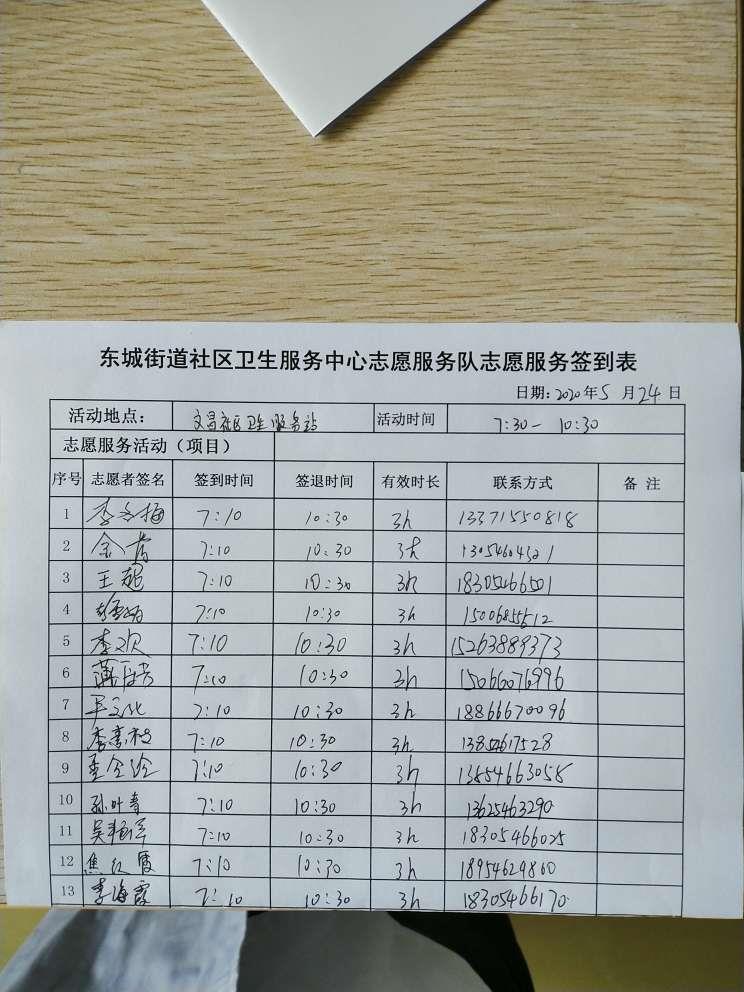 东城街道社区卫生服务中心志愿服务队志愿服务签到表
日期: 2020年5月24日
活动地点: 文昌社区卫生服务站 活动时间 7:30- 10:30
志愿服务活动（项目）
序号 志愿者签名 签到时间 签退时间 有效时长 联系方式 备 注
1 7:10 10:30 3h 13371550818
2 7:10 10:30 13054604321
3 王超 7:10 10:30 3h 18305466501
4 7:10 10:30 3h
5 李欢 7:10 10:30 3h 15263889373
6 7:10 10:30 3h 15066076996
7 7:10 10:30 3h 18866670096
8 7:10 10:30 3h
9 7:10 10:30 3h 13854663058
10 孙叶青 7:10 10:30 3h 13625463290
11 7:10 10:30 3h 18305466025
12 焦红霞 7:10 10:30 3h 18954629860
13 李海霞 7:10 10:30 3h 18305466170